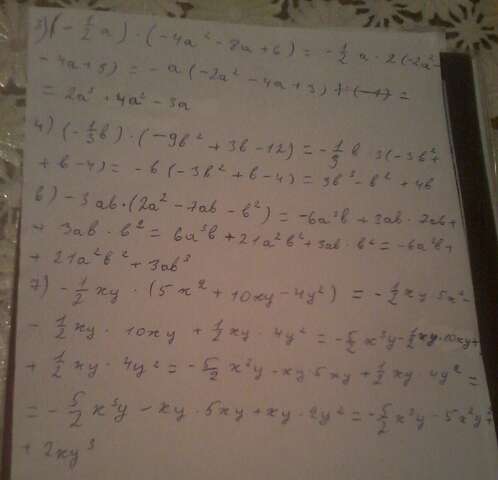 3) (-1/2 a) · (-4a² - 8a + 6) = -1/2 a · 2(-2a² -
- 4a + 3) = -a(-2a² - 4a + 3) =
= 2a³ + 4a² - 3a
4) (-1/3 b) · (-9b² + 3b - 12) = -1/3 b · 3(-3b² +
+ b - 4) = -b(-3b² + b - 4) = 3b³ - b² + 4b
6) -3ab · (2a² - 7ab - b²) = -6a³b + 3ab · 7ab +
+ 3ab · b² = 6a³b + 21a²b² + 3ab · b² = -6a³b +
+ 21a²b² + 3ab³
7) -1/2 xy · (5x² + 10xy - 4y²) = -1/2 xy 5x² -
- 1/2 xy · 10xy + 1/2 xy · 4y² = -5/2 x³y - 1/2 xy · 10xy +
+ 1/2 xy · 4y² = -5/2 x³y - xy · 5xy + 1/2 xy · 4y² =
= -5/2 x³y - xy · 5xy + xy · 2y² = -5/2 x³y - 5x²y² +
+ 2xy³